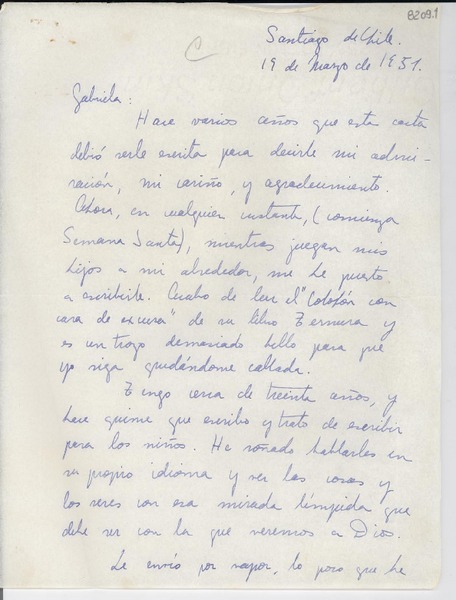 8209.1
C
Santiago de Chile.
19 de Marzo de 1951.
Gabriela:
Hace varios años que esta carta
debió serle escrita para decirle mi admi-
ración, mi cariño, y agradecimiento.
Ahora, en cualquier instante, (comienza
Semana Santa), mientras juegan mis
hijos a mi alrededor, me he puesto
a escribirle. Acabo de leer el "Colofón con
cara de excusa" de su libro Ternura y
es un trozo demasiado bello para que
yo siga quedándome callada.
Tengo cerca de treinta años, y
hace quince que escribo y trato de escribir
para los niños. He soñado hablarles en
su propio idioma y ver las cosas y
los seres con esa mirada límpida que
debe ser con la que veremos a Dios.
Le envío por vapor, lo poco que he